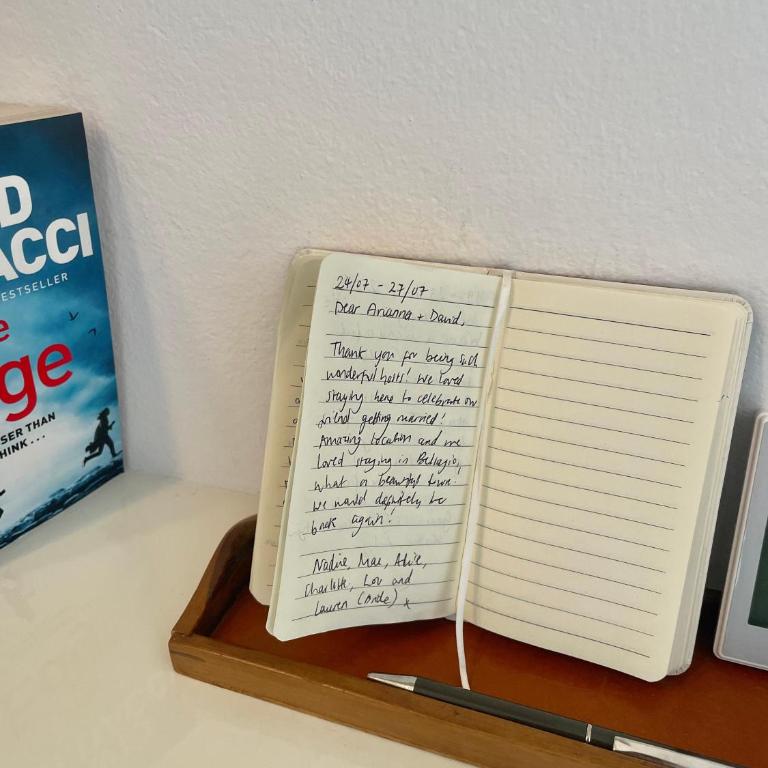 D
ACCI
ESTSELLER
e
ge
SER THAN
HINK...
24/07 - 27/07
Dear Arianna + David,
Thank you for being such
wonderful hosts! We loved
staying here to celebrate our
friend getting married!
Amazing location and we
loved staying in Bellagio,
what a beautiful town.
We would definitely be
back again!
Nadie, Mae, Alice,
Charlotte, Lou and
Lauren (Bride) x